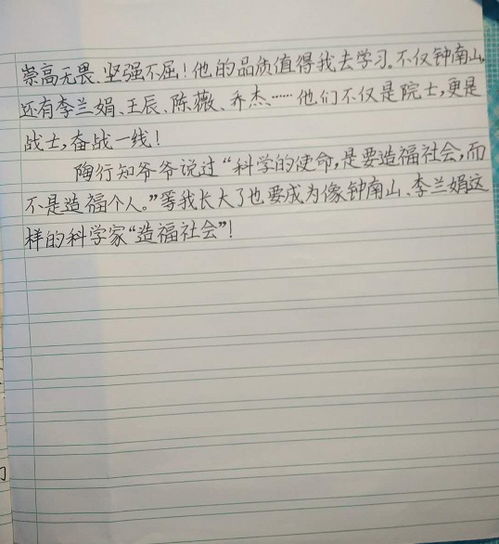 崇高无畏、坚强不屈！他的品质值得我去学习。不仅钟南山，
还有李兰娟、王辰、陈薇、乔杰……他们不仅是院士，更是
战士，奋战一线！
陶行知爷爷说过“科学的使命，是要造福社会，而
不是造福个人。”等我长大了也要成为像钟南山、李兰娟这
样的科学家“造福社会”！